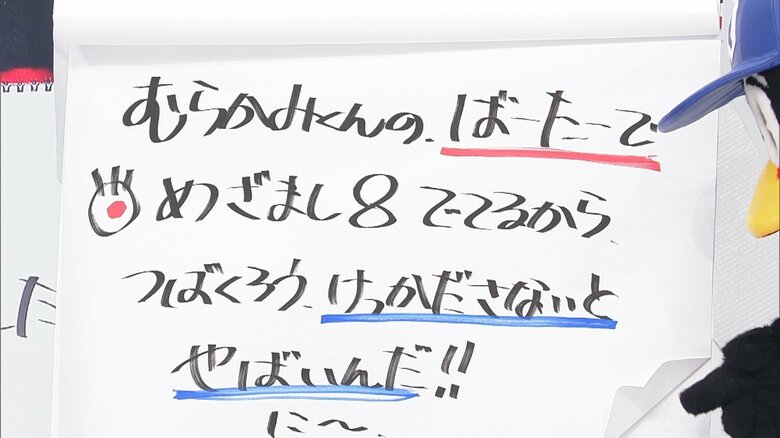 むらかみくんの、ばーたーで
めざまし8でてるから、
つばくろう、けっかださないと
やばいんだ!!
に〜、